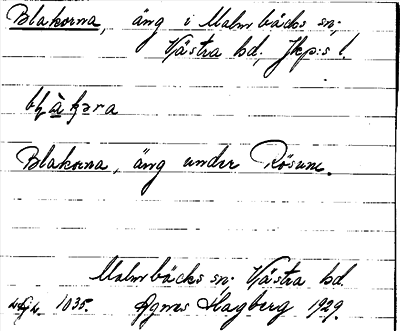 Blakorna, äng i Malmbäcks sn;
Västra hd, Jkp:s l.
Blakorna, äng under Rösum.
Malmbäcks sn; Västra hd.
1035. Agnes Hagberg 1929.